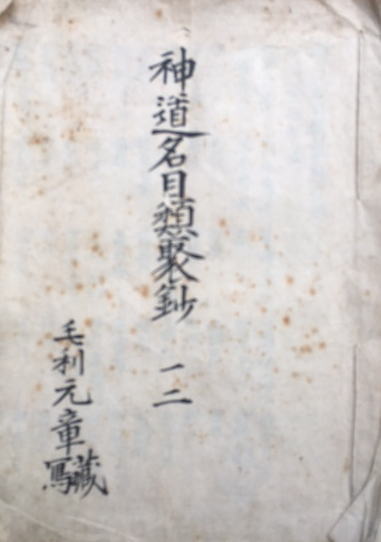 神道名目類聚鈔 一二
毛利元章寫藏